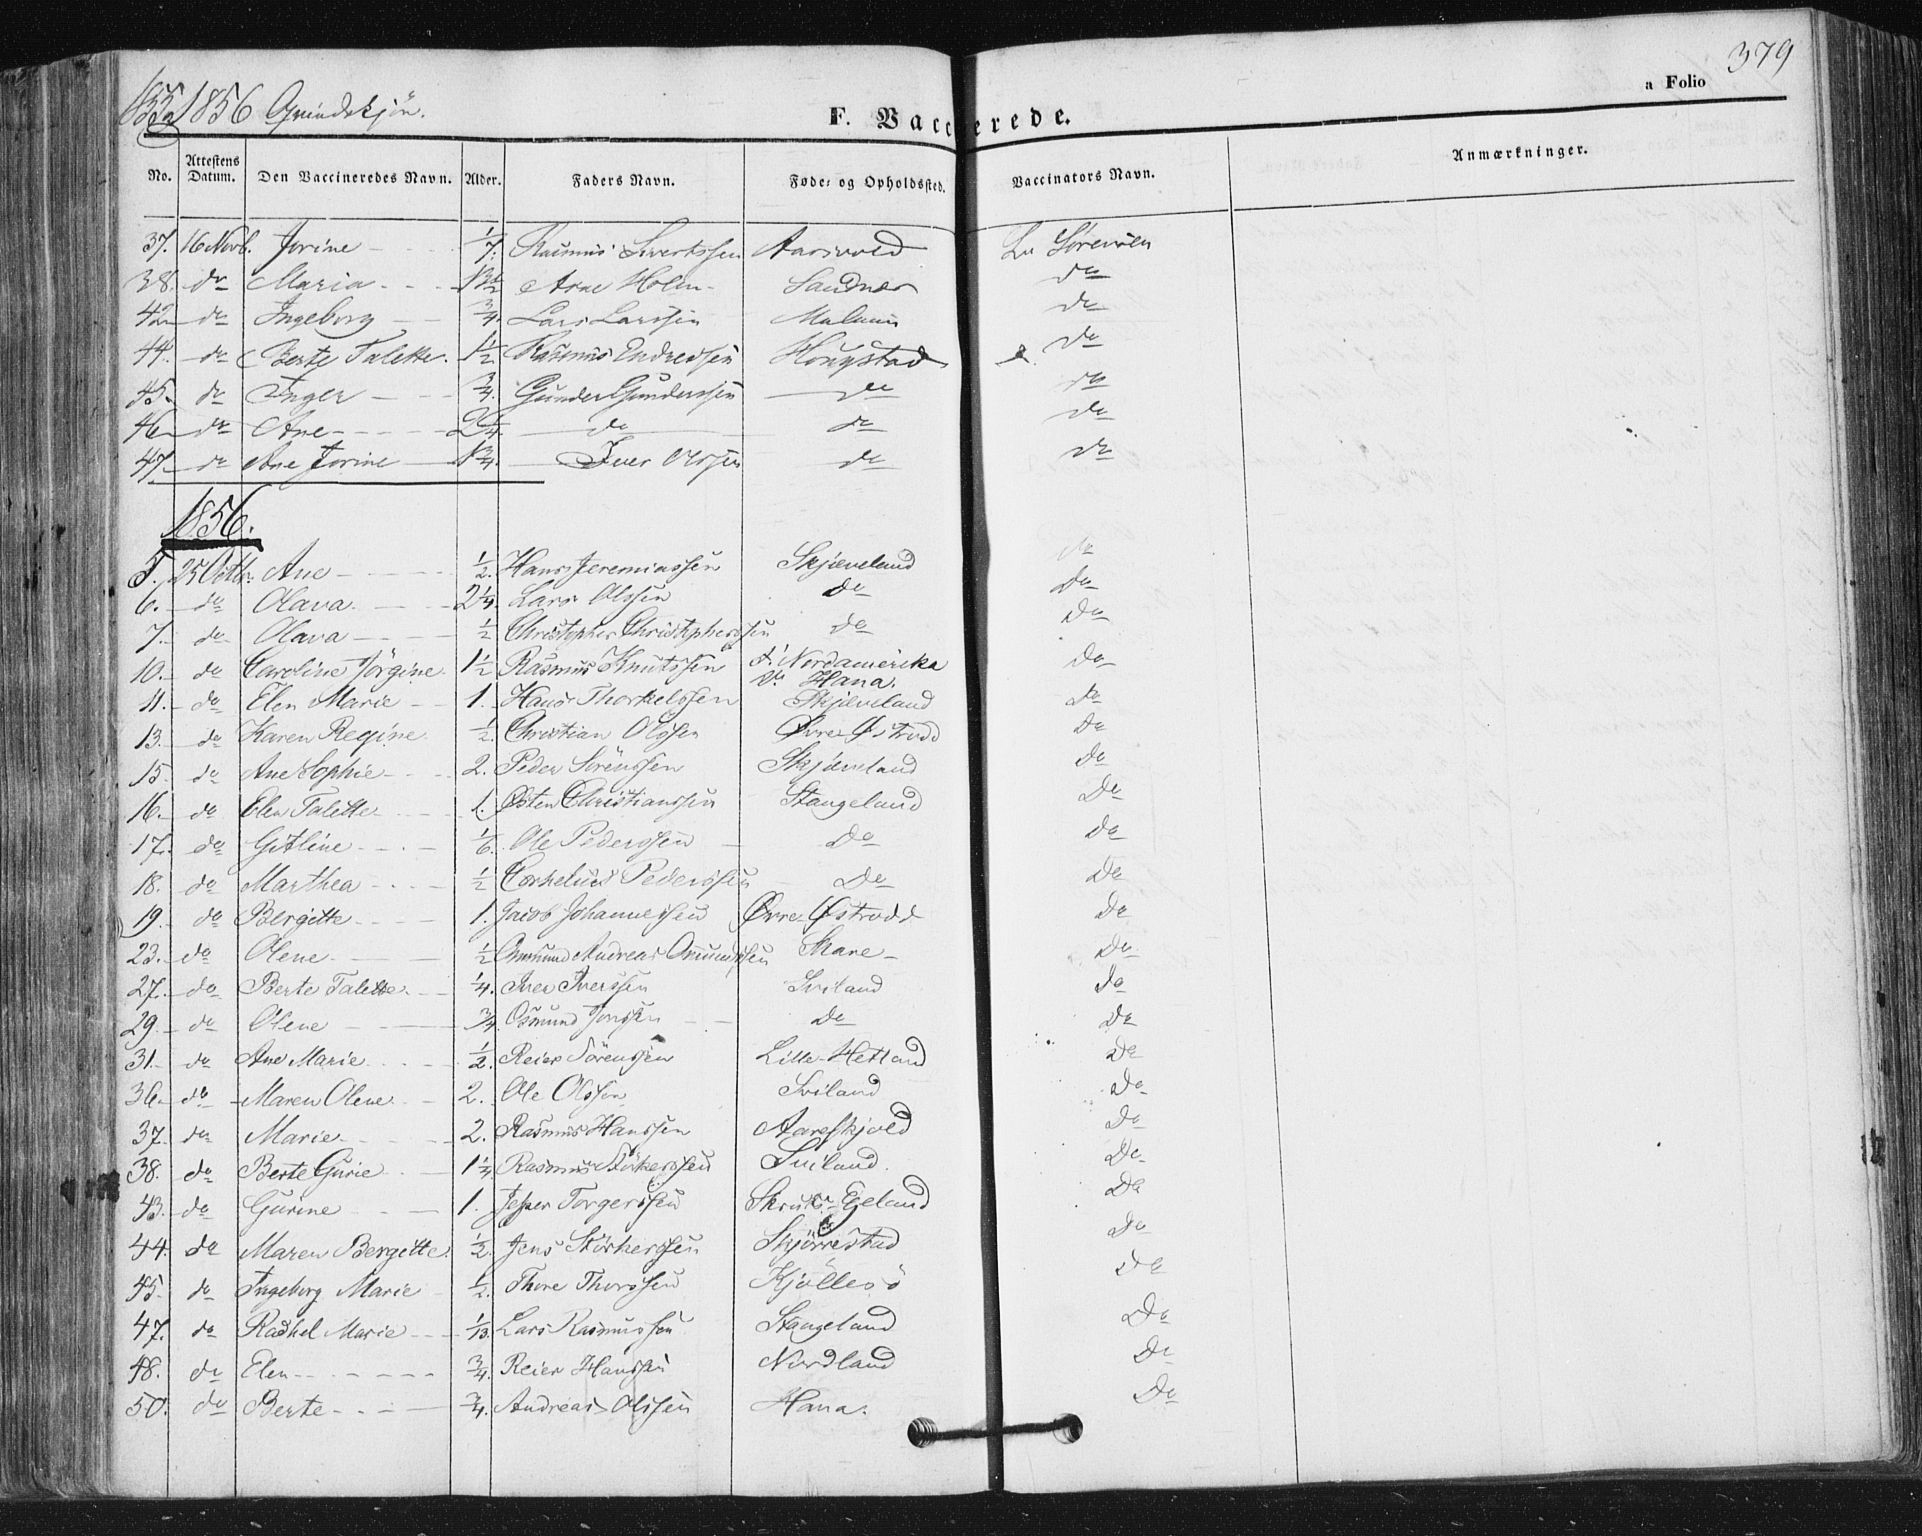 1855, 1856 Qvindekjön.
F. Vaccinerede.
a Folio 379
No. Attestens Datum. Den Vaccineredes Navn. Alder. Faders Navn. Føde- og Opholdssted. Vaccinators Navn. Anmærkninger.
37. 16 Novb. Jorine 1/7. Rasmus Sivertssen Aarsvold Sörensen
38. do Maria Arne Holm Sandnes do
42 do Ingeborg 3/4. Lars Larssen do
44. do Berte Talette. 1 1/2 Rasmus Endresen Hougstad do
45. do Inger 3/4. Gunder Gunderssen do do
46 do Ane 2 1/4. do do do
47 do Ane Jorine 3/4. Iver Olssen do do
1856.
5. 25 Octbr. Ane 1/2. Hans Jeremiassen Skjæveland do
6. do Olava. 2 1/4. Lars Olssen do Do
7. do Olava 1/2 Christopher Christopherssen do Do
10. do Caroline Jörgine 1 1/2 Rasmus Knutssen f. i Nordamerika Do
Hana.
11. do Elen Marie 1. Hans Thorkelssen Skjæveland Do
13. do Karen Regine 1/2. Christian Olssen Øvre Østrodd Do
15. do Ane Sophie 2. Peder Sörenssen Skjæveland do
16. do Elen Talette 1. Østen Christianssen Stangeland Do
17. do Gitline 1/6. Ole Pederssen Do do
18. do Marthea 1/2 Cornelius Pederssen Do Do
19. do Bergitte 1. Jacob Johannessen Øvre Østrodd Do
23. do Olene 1/2 Omund Andreas Omundssen Skare Do
27. do Berte Talette 1/4. Iver Iverssen Sviland do
29. do Olene 3/4. Osmund Jonssen Do Do
31. do Ane Marie 1/2. Reier Sörenssen Lille-Hetland Do
36. do Maren Olene 2. Ole Olssen Sviland Do
37. do Marie 2. Rasmus Hanssen Aareskjold Do
38. do Berte Gurie 1 1/4 Rasmus Störkerssen Sviland. Do
43. do Gurine 1. Jesper Torgerssen Egeland Do
44. do Maren Bergitte. 1/2. Jens Störkerssen Skjörrestad Do
45. do Ingeborg Marie 1/2. Thore Thorssen Kjöllesö Do
47. do Rachel Marie 1/13. Lars Rasmussen Stangeland Do
48. do Elen 3/4. Reier Hanssen Nordland Do
50. do Berte 3/4. Andreas Olssen Hana. Do